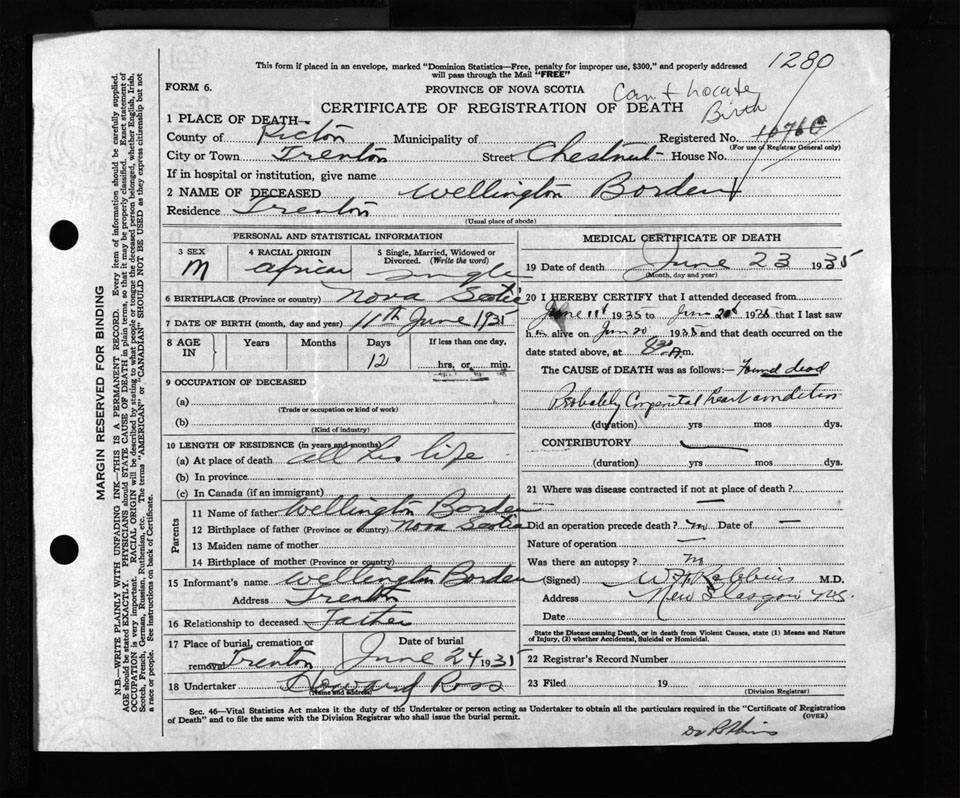 1280
This form if placed in an envelope, marked "Dominion Statistics—Free, penalty for improper use, $300," and properly addressed
will pass through the Mail "FREE"
FORM 6.
PROVINCE OF NOVA SCOTIA
Can't Locate
Birth
CERTIFICATE OF REGISTRATION OF DEATH
1 PLACE OF DEATH—
County of Pictou Municipality of Registered No.
(For use of Registrar General only)
City or Town Trenton Street Chestnut House No.
If in hospital or institution, give name
2 NAME OF DECEASED Wellington Borden
Residence Trenton
(Usual place of abode)
PERSONAL AND STATISTICAL INFORMATION
3 SEX
M
4 RACIAL ORIGIN
African
5 Single, Married, Widowed or
Divorced. (Write the word)
Single
6 BIRTHPLACE (Province or country) Nova Scotia
7 DATE OF BIRTH (month, day and year) 11th June 1935
8 AGE
IN
Years Months Days If less than one day,
12 hrs, or min.
9 OCCUPATION OF DECEASED
(a)
(Trade or occupation or kind of work)
(b)
(Kind of industry)
10 LENGTH OF RESIDENCE (in years and months)
(a) At place of death all his life
(b) In province
(c) In Canada (if an immigrant)
Parents
11 Name of father Wellington Borden
12 Birthplace of father (Province or country) Nova Scotia
13 Maiden name of mother
14 Birthplace of mother (Province or country)
15 Informant's name Wellington Borden
Address Trenton
16 Relationship to deceased Father
17 Place of burial, cremation or
removal Trenton
Date of burial
June 24 1935
18 Undertaker Howard Ross
(Name and address)
MEDICAL CERTIFICATE OF DEATH
19 Date of death June 23 1935
(Month, day and year)
20 I HEREBY CERTIFY that I attended deceased from
June 11 1935 to June 20 1935 that I last saw
h im alive on June 20 1935 and that death occurred on
date stated above, at m.
The CAUSE of DEATH was as follows:— Found dead
Probably Congenital heart condition
(duration) yrs mos dys.
CONTRIBUTORY
(duration) yrs mos dys.
21 Where was disease contracted if not at place of death? —
Did an operation precede death? no Date of —
Nature of operation —
Was there an autopsy? no
(Signed) W H Robbins M.D.
Address New Glasgow N.S.
Date
State the Disease causing Death, or in death from Violent Causes, state (1) Means and Nature
of Injury, (2) whether Accidental, Suicidal or Homicidal.
22 Registrar's Record Number
23 Filed 19
(Division Registrar)
Sec. 46—Vital Statistics Act makes it the duty of the Undertaker or person acting as Undertaker to obtain all the particulars required in the "Certificate of Registration
of Death" and to file the same with the Division Registrar who shall issue the burial permit.
(OVER)
Dr Robbins
MARGIN RESERVED FOR BINDING
N.B.—WRITE PLAINLY WITH UNFADING INK—THIS IS A PERMANENT RECORD. Every item of information should be carefully supplied.
AGE should be stated EXACTLY. PHYSICIANS should STATE CAUSE OF DEATH in plain terms, so that it may be properly classified. Exact statement of
OCCUPATION is very important. RACIAL ORIGIN will be described by stating to what people or tongue the deceased person belonged, whether English, Irish,
Scotch, French, German, Russian, Ruthenian, etc. The terms "AMERICAN" or "CANADIAN" SHOULD NOT BE USED as they express citizenship but not
a race or people. See instructions on back of Certificate.